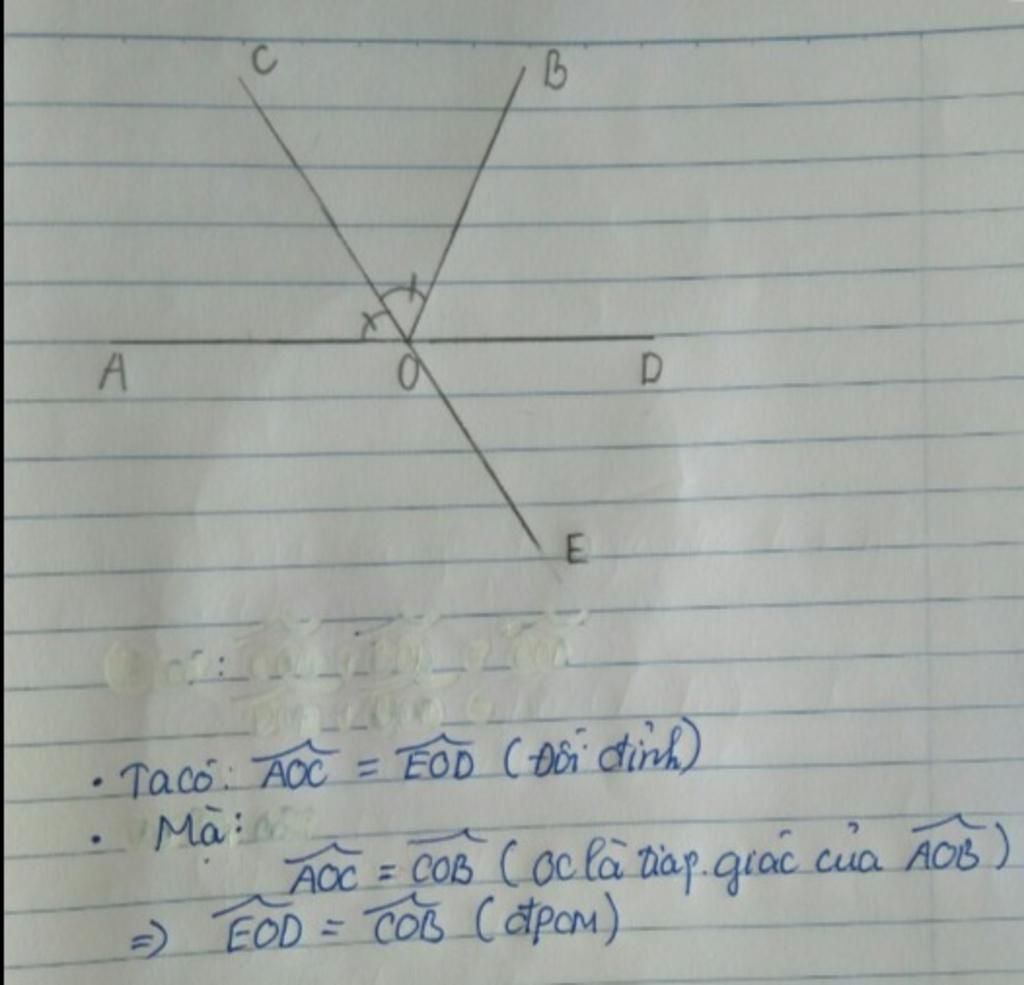 C
B
A
O
D
E
• Ta có: AOC = EOD (Đối đỉnh)
• Mà:
AOC = COB (OC là tia p.giác của AOB)
=> EOD = COB (đpcm)